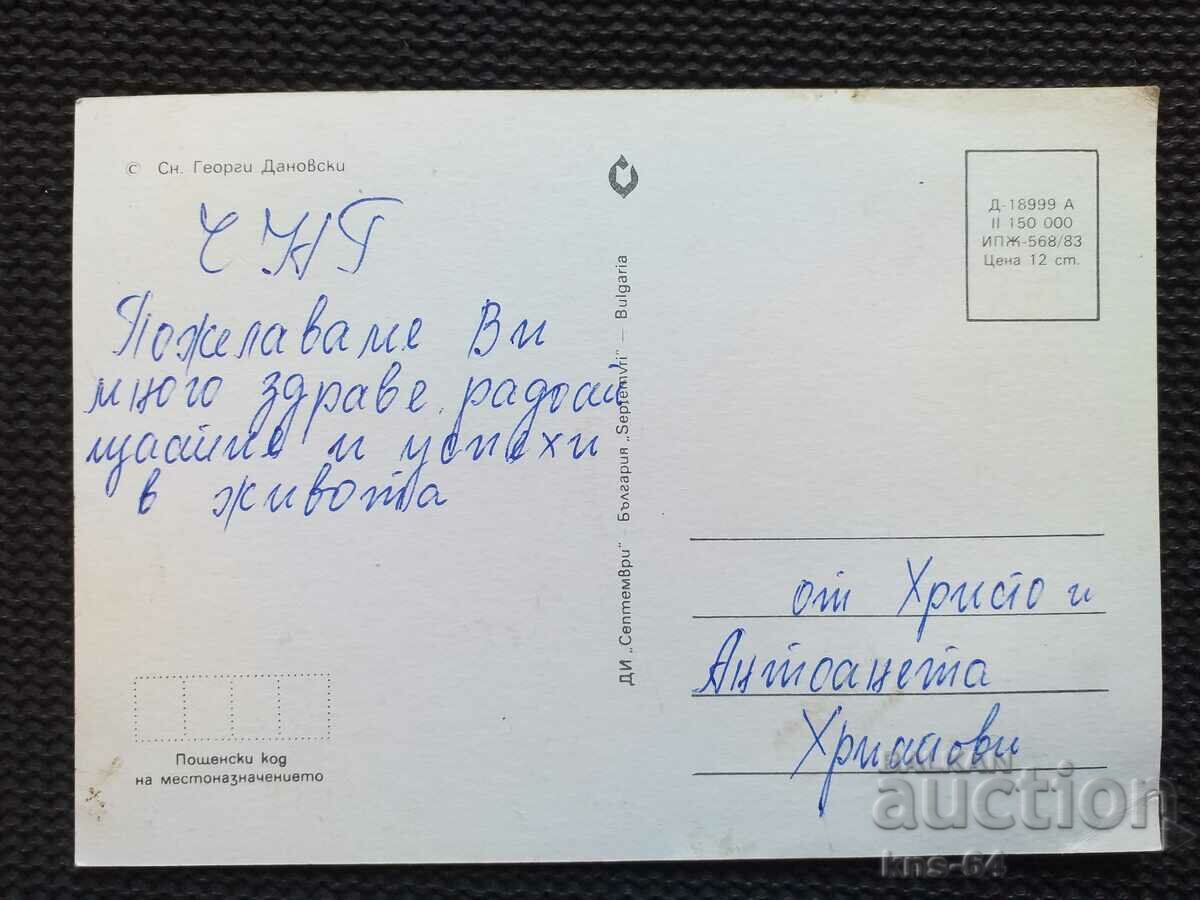 © Сн. Георги Дановски
ЧНГ
Пожелаваме Ви
много здраве, радост
щастие и успехи
в живота
Пощенски код
на местоназначението
ДИ „Септември" — България „Septemvri" — Bulgaria
Д-18999 А
II 150 000
ИПЖ-568/83
Цена 12 ст.
от Христо и
Антоанета
Христови
BALKAN
auction
kns-64